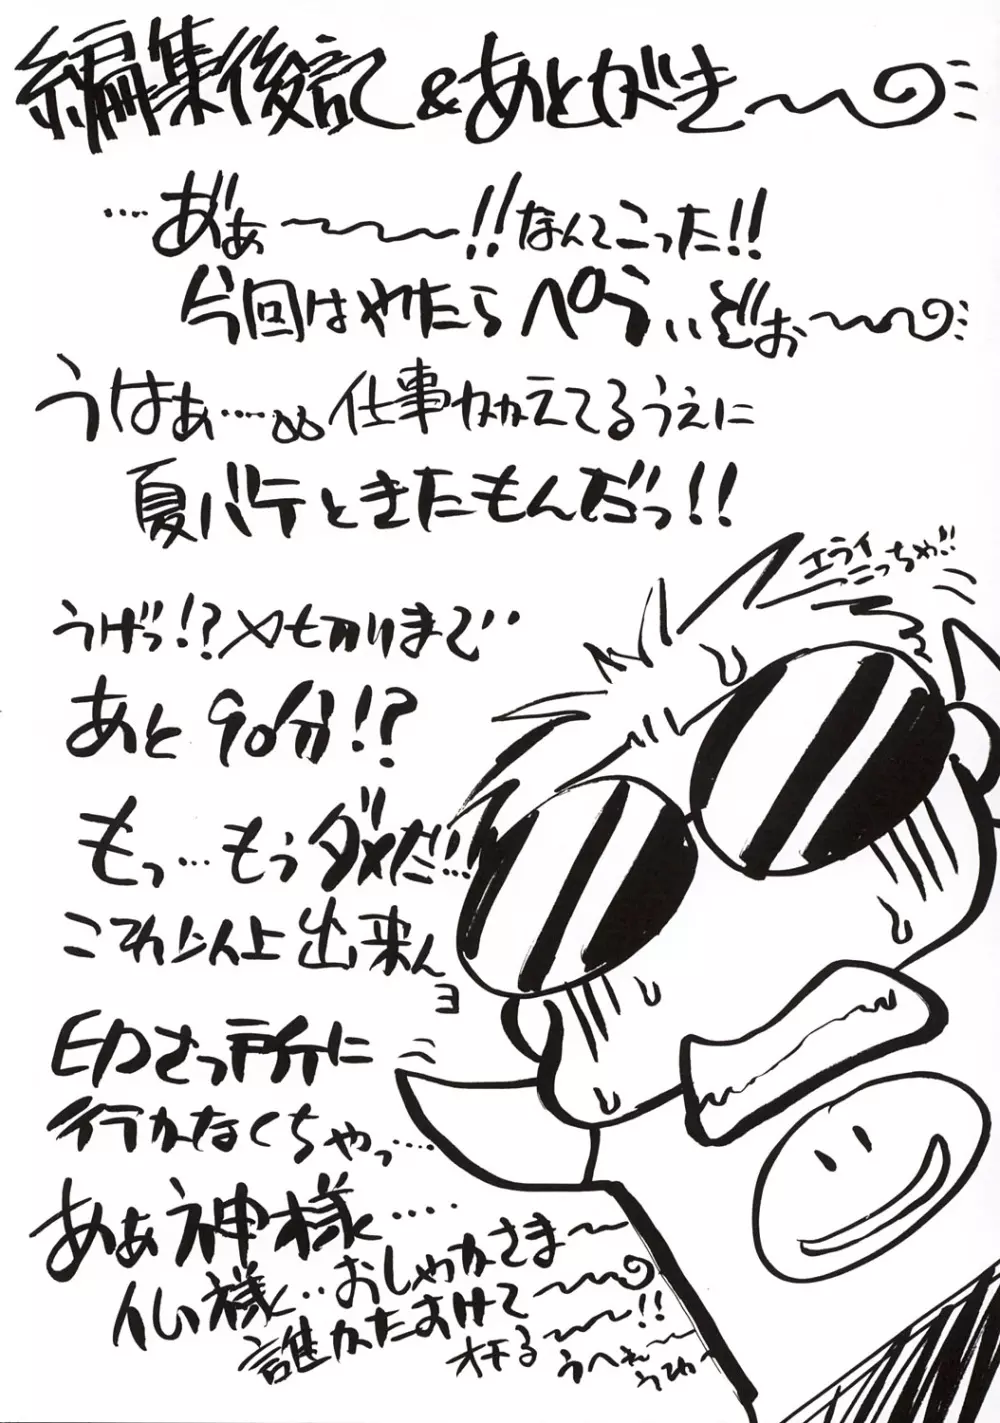 編集後記&あとがき〜〜
‥‥あ゛ぁ〜〜〜!!なんてこった!!
今回はやたらペラいぞぉ〜〜〜
うはぁ‥‥‥。。仕事かかえてるうえに
夏バテときたもんだっ!!
エライ
こっちゃ!!
うげっ!?〆切りまで‥
あと90分!?
もっ…もうダメだ!!
これ以上出来ん
ヨ
印さつ所に
行かなくちゃっ‥‥
あぁ神様‥‥
仏様‥おしゃかさま〜〜
誰かたすけて〜〜〜
オチる〜〜!!
うへぇ〜〜